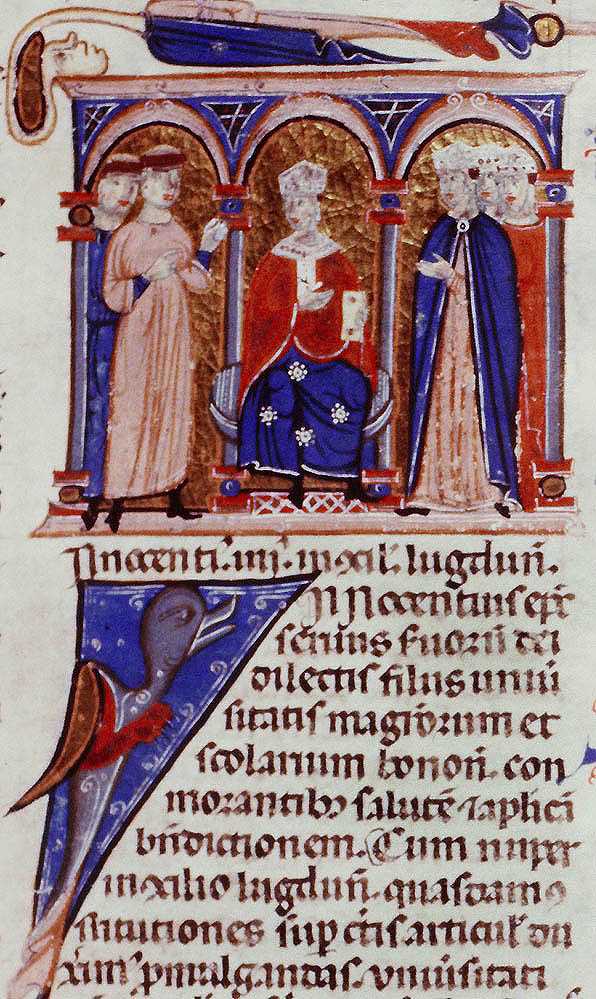 Innocenti'. iiij. in 9cil'. lugdun̄.
INNocentius ep̄c
seruus seruorū dei
dilectis filiis uniū
sitatis magr̄orum et
scolarium bonon̄. con
morantibꝫ salutē ⁊ apl'icā
bn̄dictionem. Cum nuper
in 9cilio lugdun̄. quasdam 9
stitutiones sup̄ c̄tis articul' du
xim' ꝓmulgandas. uniūsitati